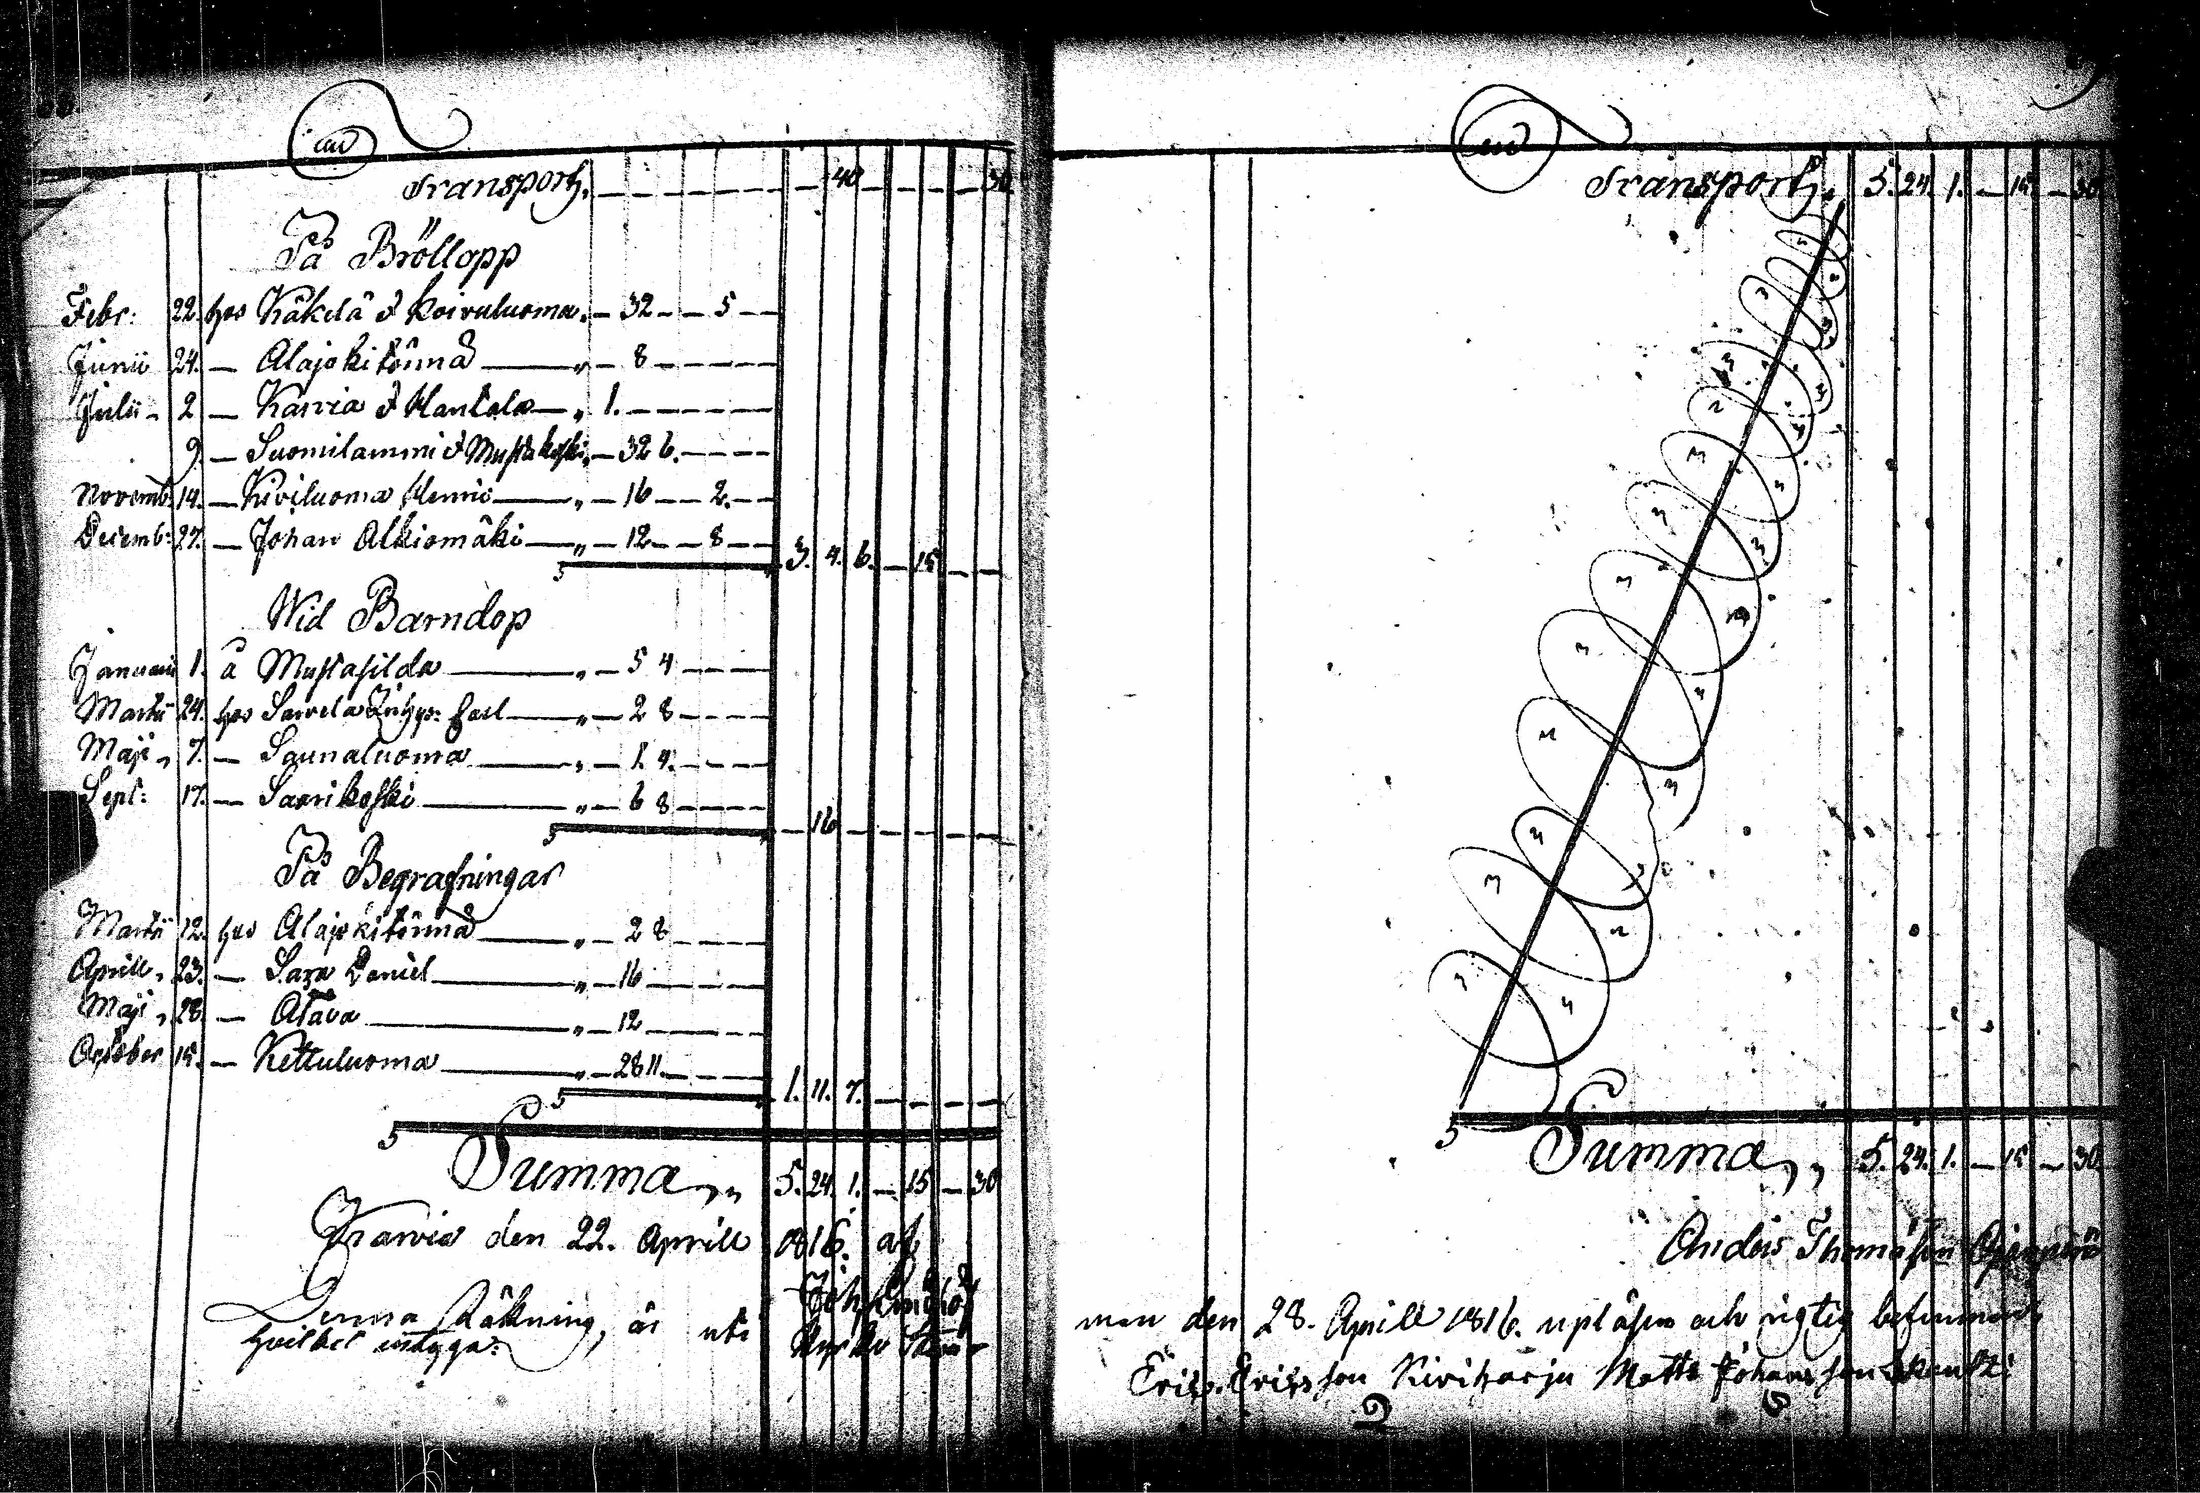 Transport. 40 30
På Bröllopp
Febr: 22. hos Käkelä & Koivuluoma. 32 5
Junii 24. Alajokitönnä 8
Julii 2 Karvia & Hantala 1.
9. Suomilammi & Mustakoski 32 6.
Novemb: 14. Kiviluoma Hemis 16 2.
Decemb: 27. Johan Alkiomäki 12 8
3. 4. 6. 15
Wid Barndop
Januarii 1. å Mustasilda 5 4
Martii 24. hos Sawela 2 8
Maji 7. Saunaluoma 1. 4.
Sept: 17. Saarikoski 6 8
16
På Begrafningar
Martii 12. hos Alajokitönnä 2 8
Aprill 23. Sara Daniel 16
Maji 28. Atava 12
October 15. Kettuluoma 28 11.
1. 11. 7.
Summa 5. 24. 1. 15 30
Karvia den 22. Aprill 1816. af
Joh
Denna Räkning, är uti Kyrko
hvilket intyga:
Transport. 5. 24. 1. 15 30
Summa 5. 24. 1. 15 30
Anders Thomasson
man den 28. Aprill 1816. upläsen och rigtig befunnen,
Eric Ericsson Kiviharju Matts Johansson